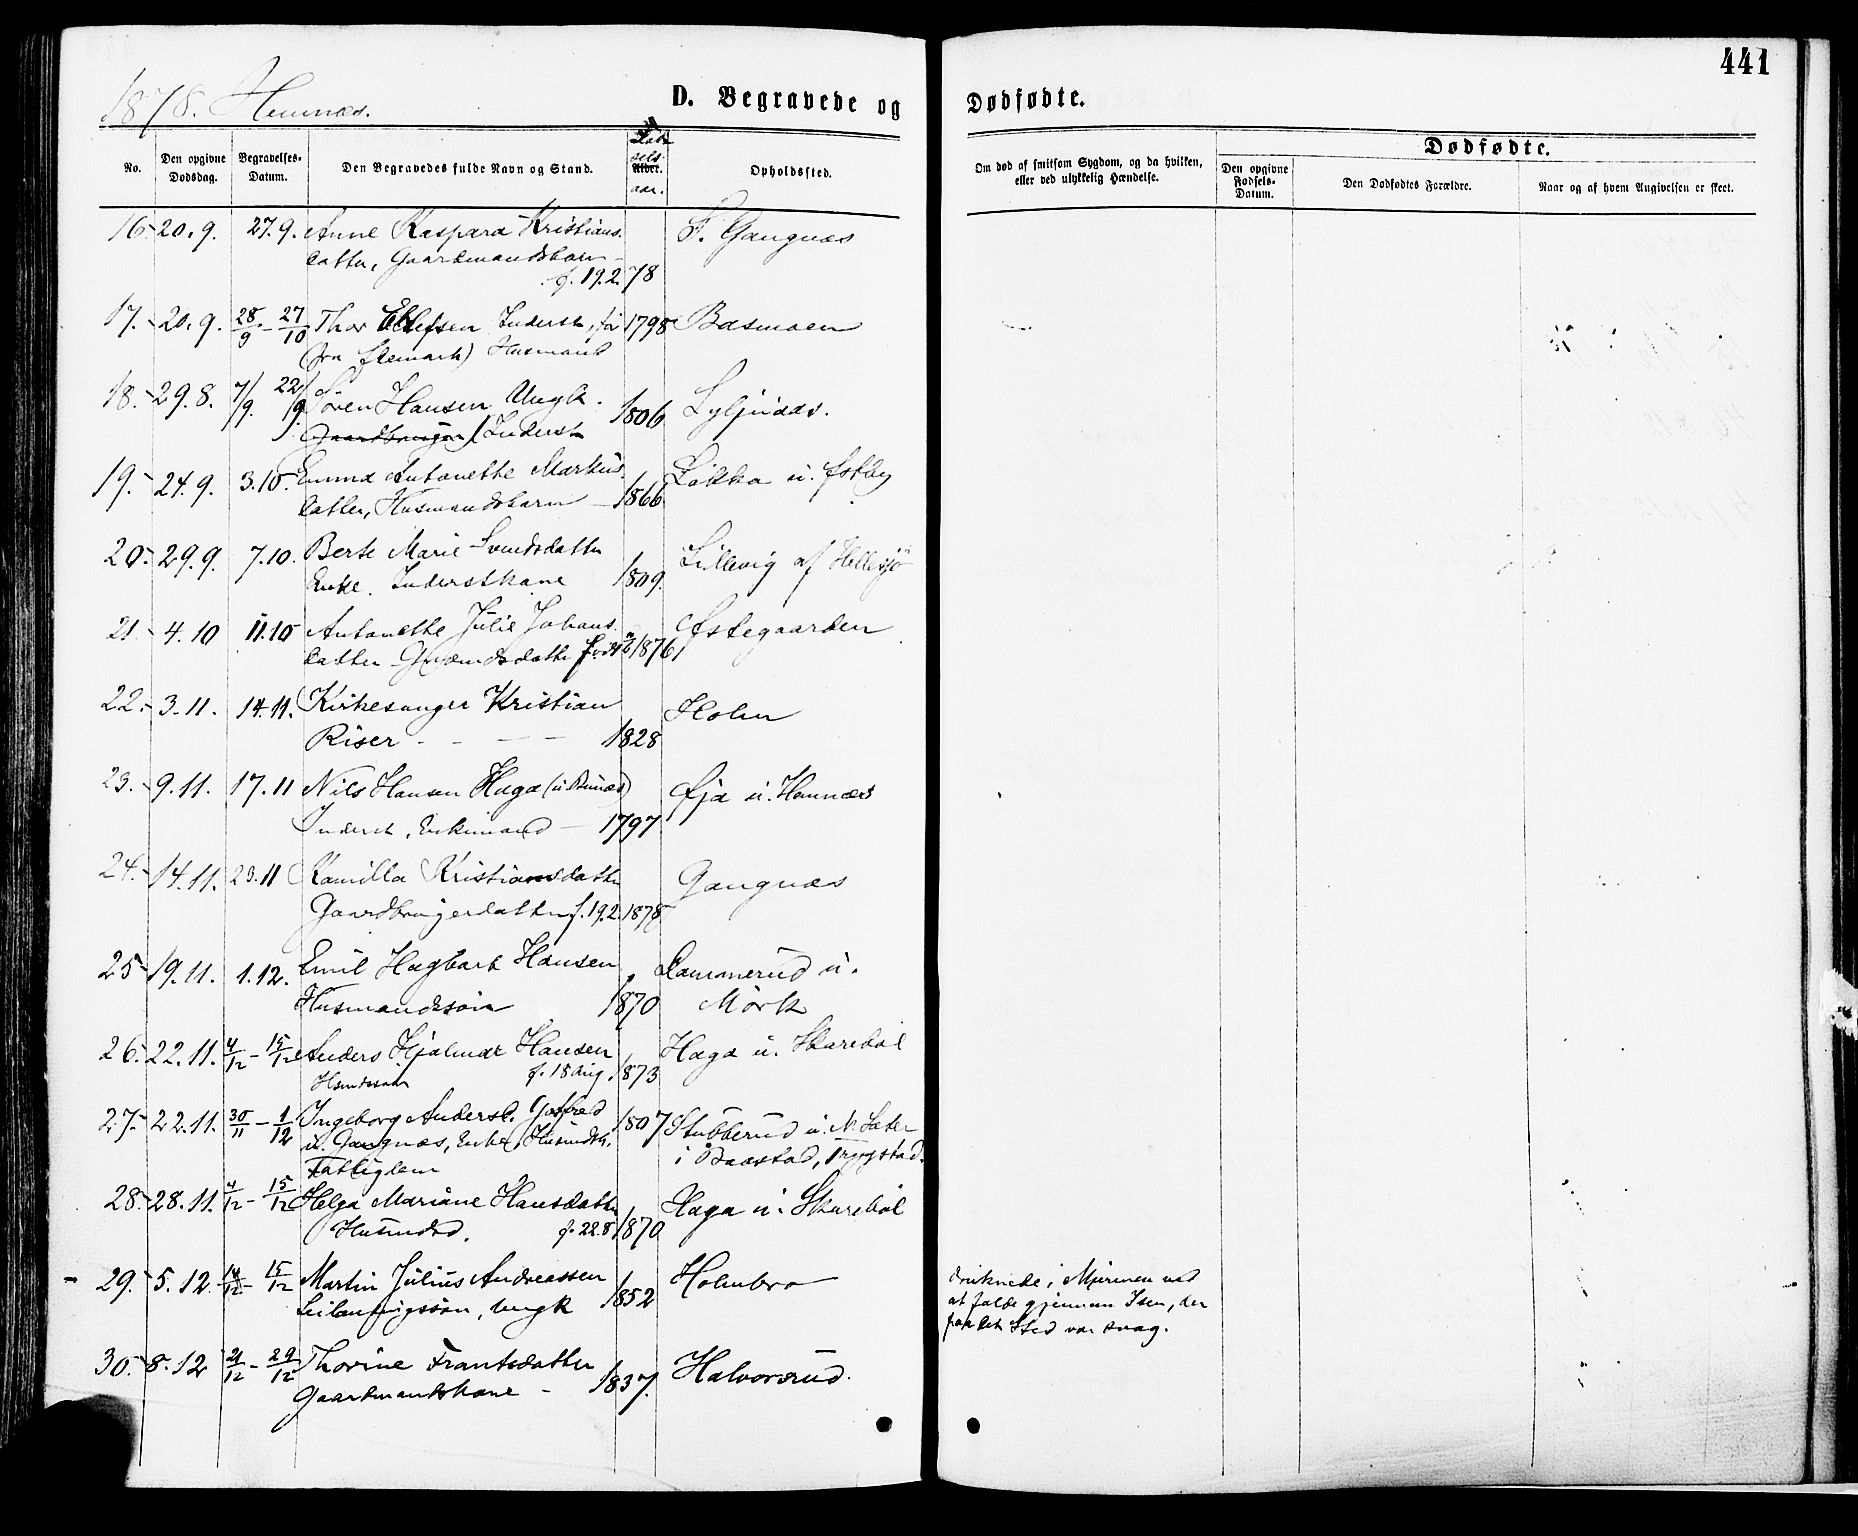 441
1878. Hemnæs.
D. Begravede og Dødfødte.
No.
Den opgivne Dødsdag.
Begravelses-Datum.
Den Begravedes fulde Navn og Stand.
Fødselsaar.
Alder.
Opholdssted.
Om død af smitsom Sygdom, og da hvilken, eller ved ulykkelig Hændelse.
Dødfødte.
Den opgivne Fødsels-Datum.
Den Dødfødtes Forældre.
Naar og af hvem Angivelsen er skeet.
16. 20.9. 27.9. Anne Kaspara Kristians- F. Gangnæs
datter, Gaardmandsbarn
f. 19.2. 78
17. 20.9. 28/9 - 27/10 Thor Ellefsen Inderst, før 1798 Basmoen
(fra ) Husmand
18. 29.8. 7/9. 22/9. Søren Hansen Ungk. 1806
Gaardbruger / Inderst
19. 24.9. 3.10. Emma Antonette Markus- Løkka u. Østby
datter, Husmandsbarn 1866
20. 29.9. 7.10. Berte Marie Svendsdatter Lillevig af Hellesjø
Enke. Inderstkone 1809.
21. 4.10 11.10 Antonette Julie Johans- Østegaarden
datter Grdmdsdatter født 1876
22. 3.11. 14.11. Kirkesanger Kristian Holm
Riser - - - 1828
23. 9.11. 17.11 Nils Hansen Haga Øja u. Hemnæs
Inderst, Enkemand 1797
24. 14.11. 23.11 Kamilla Kristiansdatter Gangnæs
Gaardbrugerdatter f. 19.2. 1878
25 19.11. 1.12. Emil Hagbart Hansen Dammerud u.
Husmandssøn 1870 Mørk
26. 22.11. 4/12 - 15/12 Anders Hjalmar Hansen Haga u. Skarebøl
Hsmdssøn f. 18 Aug. 1873
27. 22.11. 30/11 - 1/12 Ingeborg Andersd. 1807 Stubberud u. N. Sæter
u. Gangnæs, Enke, Husmdsk. i Baastad, Trygstad.
Fattiglem
28. 28.11. 4/12 - 15/12 Helga Mariane Hansdatter Haga u. Skarebøl
Husmdsd. f. 22.8 1870
29. 5.12 14/12 - 15/12 Martin Julius Andreassen Holmbro druknede i Mjermen ved
Leilændigssøn, Ungk 1852 at falde gjennem Isen, der
paa det Sted var svag.
30. 8.12 21/12 - 29/12 Thorine Frantsdatter Halvorsrud.
Gaardmandskone - 1837.